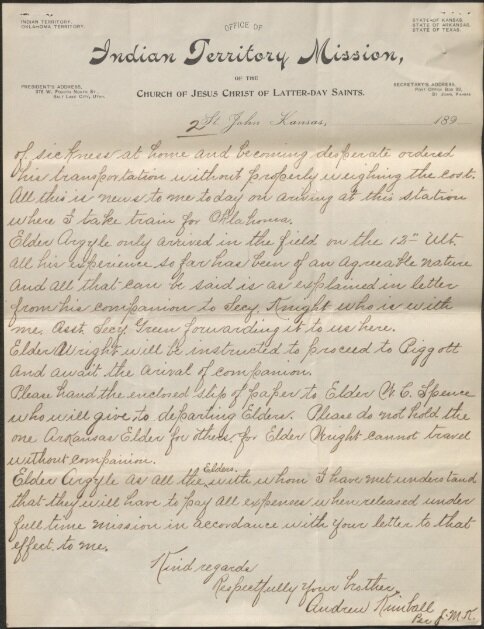 INDIAN TERRITORY.
OKLAHOMA TERRITORY.
STATE OF KANSAS.
STATE OF ARKANSAS.
STATE OF TEXAS.
OFFICE OF
Indian Territory Mission,
OF THE
CHURCH OF JESUS CHRIST OF LATTER-DAY SAINTS.
PRESIDENT'S ADDRESS,
375 W. FOURTH NORTH ST.,
SALT LAKE CITY, UTAH.
SECRETARY'S ADDRESS,
POST OFFICE BOX 32,
ST. JOHN, KANSAS
2 St. John Kansas, 189
of sickness at home and becoming desperate ordered
his transportation without properly weighing the cost.
All this is news to me today on ariving at this station
where I take train for Oklahoma.
Elder Argyle only arrived in the field on the 12" Ult.
all his experience so far has been of an agreeable nature
and all that can be said is as explained in letter
from his companion to Secy. Knight who is with
me, Asst. Secy. Green forwarding it to us here.
Elder Wright will be instructed to proceed to Piggott
and await the arival of companion.
Please hand the enclosed slip of paper to Elder W. C. Spence
who will give to departing Elders. Please do not hold the
one Arkansas Elder for others, for Elder Wright cannot travel
without companion.
Elder Argyle as all the Elders with whom I have met understand
that they will have to pay all expenses when released under
full time mission in accordance with your letter to that
effect, to me.
Kind regards
Respectfully your brother,
Andrew Kimball
Per J. M. K.